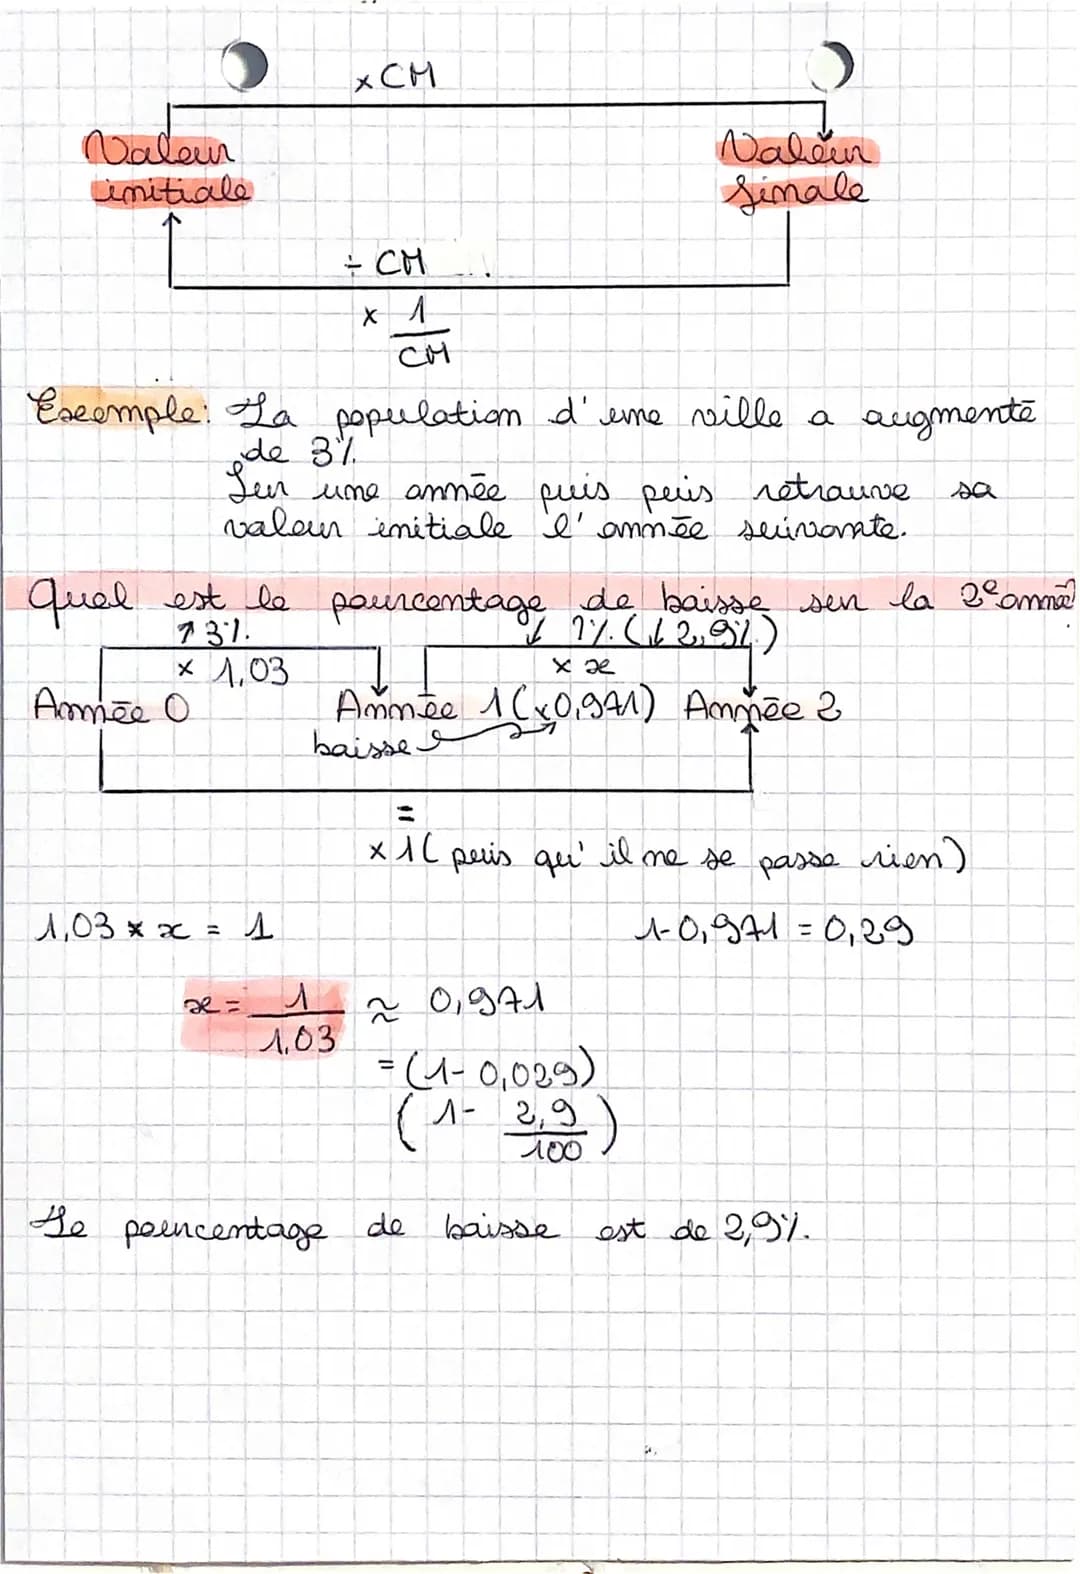 × CM
Valeur
initiale
Valeur
finale
÷ CM
× 1
CM
Exemple: La population d'une ville a augmenté
de 3%.
Sur une année puis puis retrouve sa
valeur initiale l'année suivante.
Quel est le pourcentage de baisse sur la 2e année
↑ 3%.
↓ ?%. (↓ 2,9%.)
× 1,03
× x
Année 0
Année 1 (×0,971) Année 2
baisse
=
× 1 ( puis qu'il ne se passe rien)
1,03 × x = 1
1-0,971 = 0,29
x = 1 ≈ 0,971
1,03
= (1- 0,029)
(1- 2,9)
100
Le pourcentage de baisse est de 2,9%.